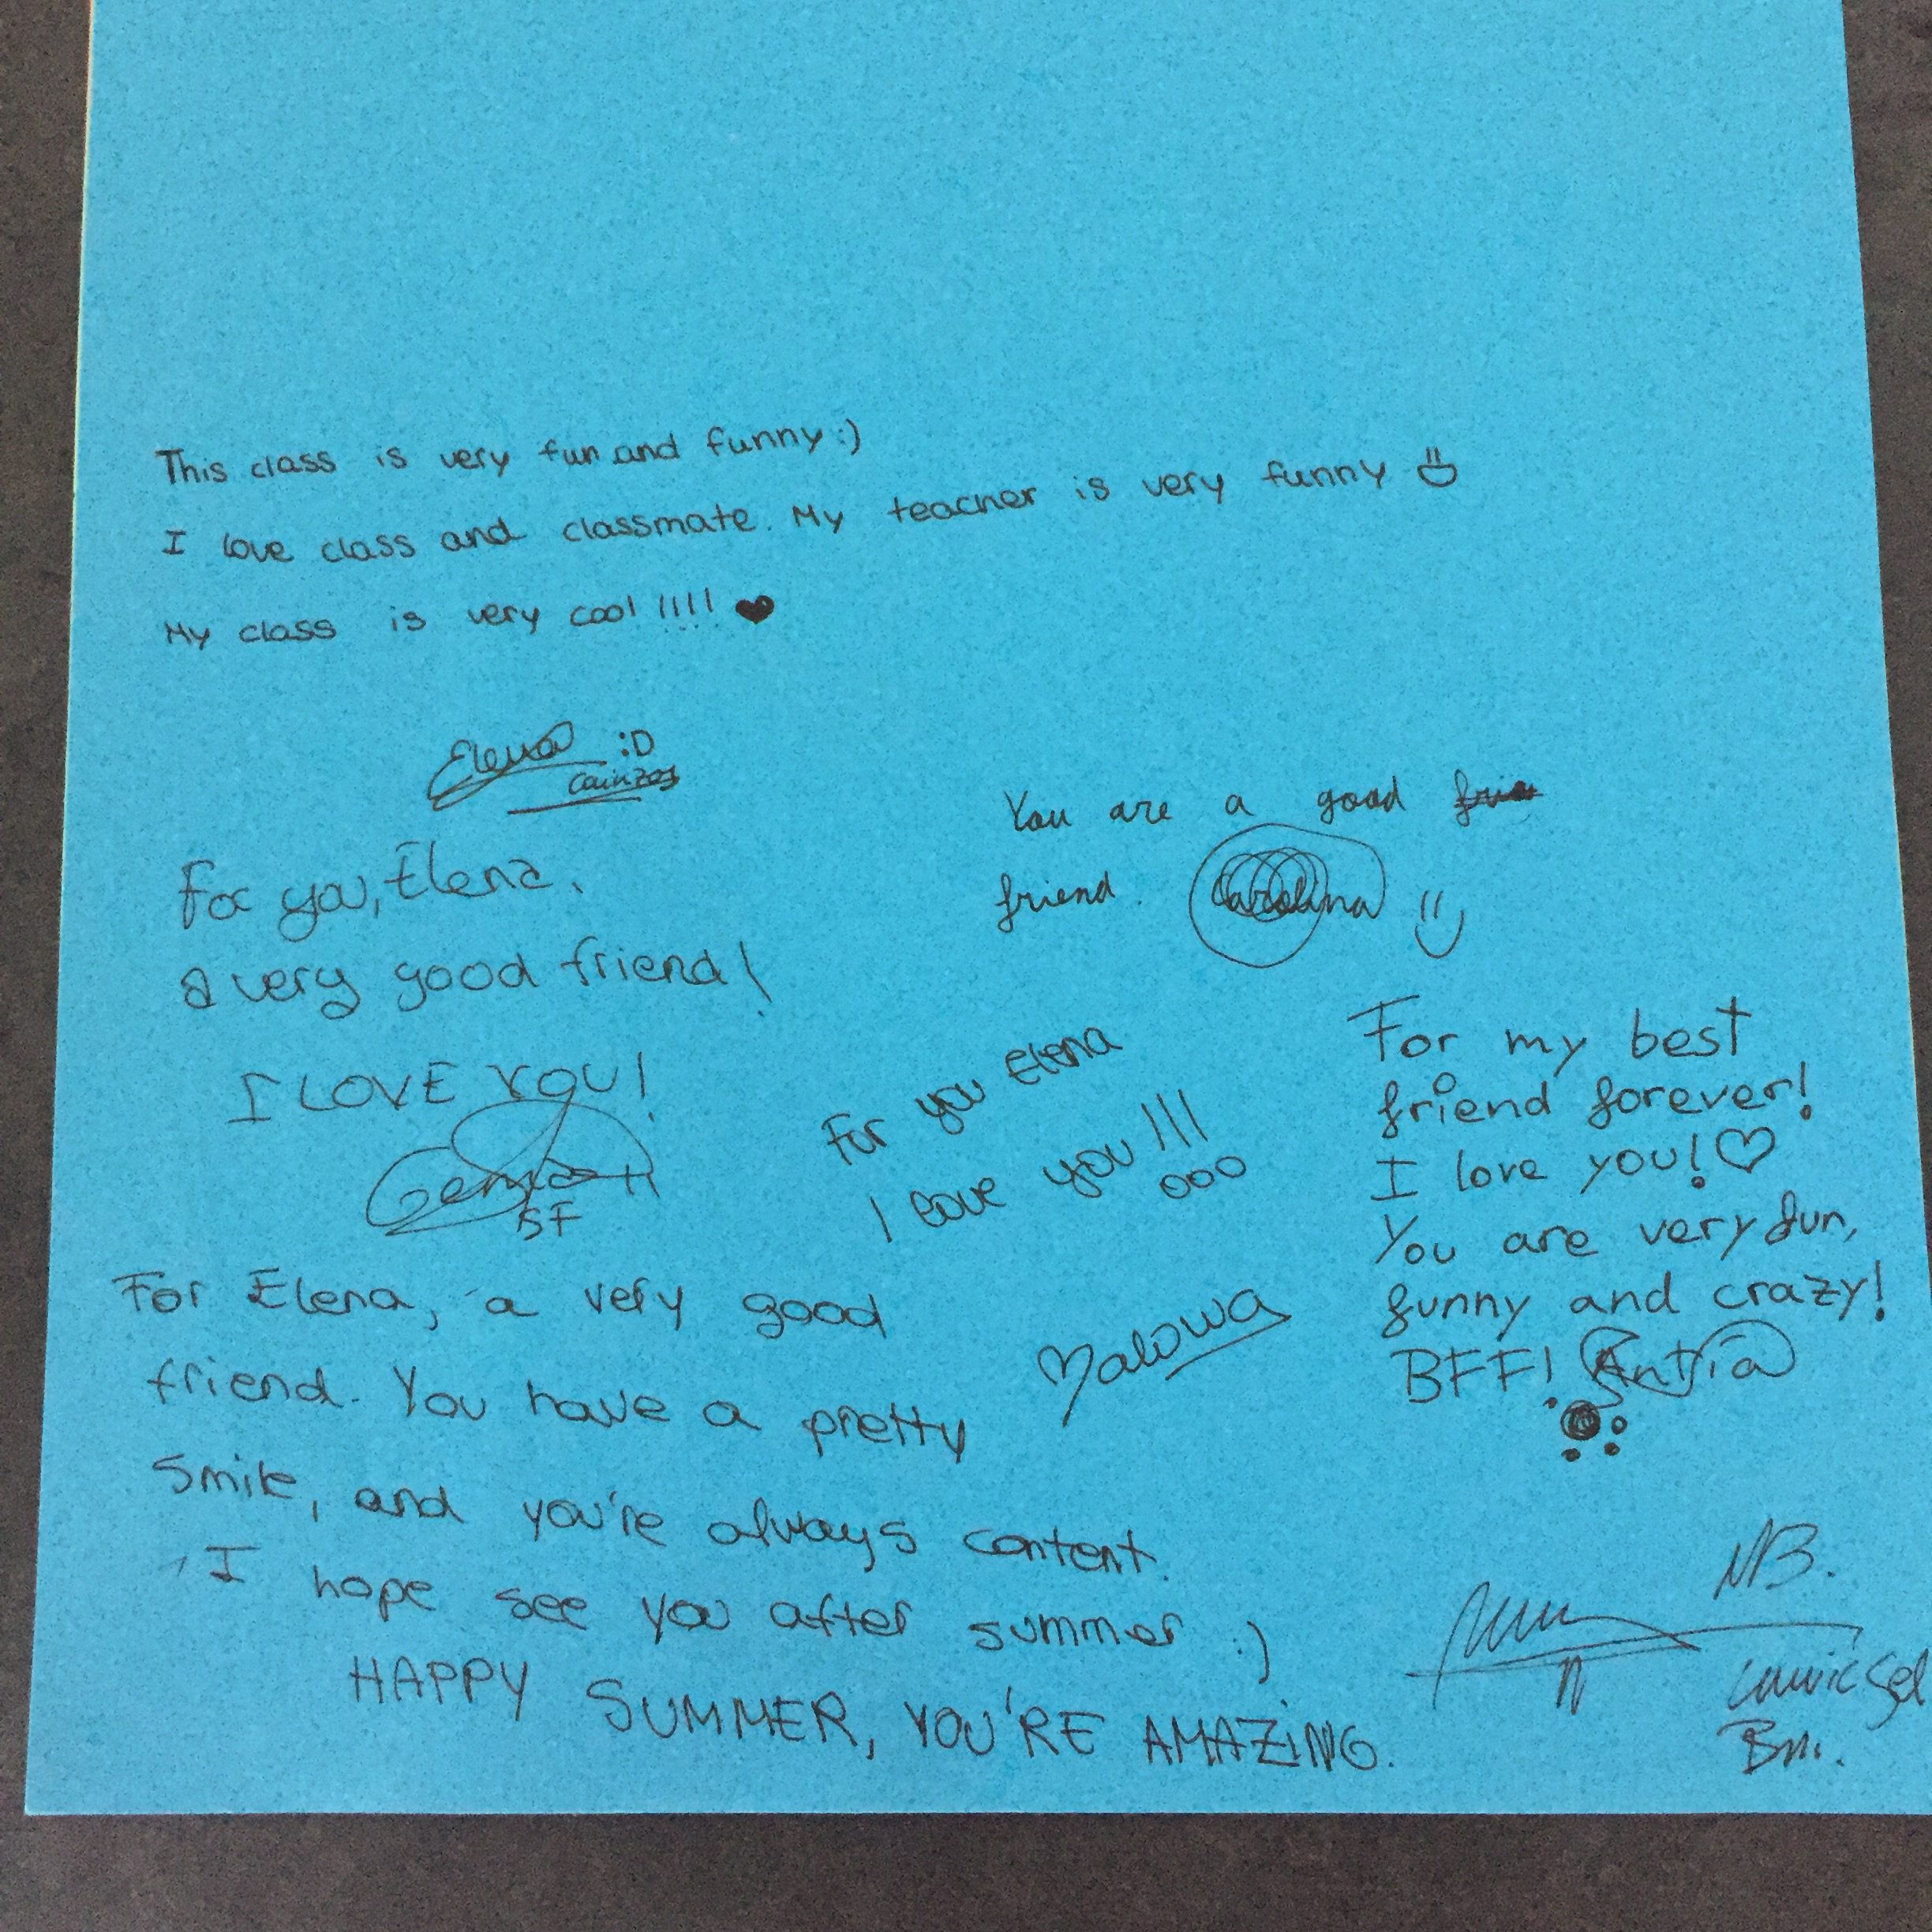 This class is very fun and funny :)
I love class and classmate. My teacher is very funny
My class is very cool !!!! ♥
Elena :D
Cainzos
For you, Elena,
a very good friend!
I LOVE YOU!
5F
You are a good
friend. Carolina
For you Elena
I love you !!!
For my best
friend forever!
I love you! ♡
You are very fun,
funny and crazy!
BFF! Antía
For Elena, a very good
friend. You have a pretty
smile, and you're always content.
I hope see you after summer :)
HAPPY SUMMER, YOU'RE AMAZING.
NB.